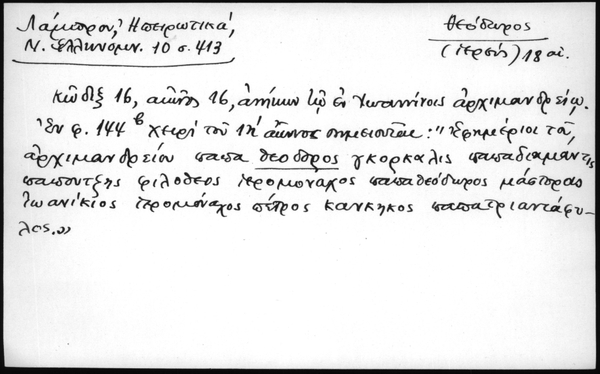 Λάμπρου, Ἠπειρωτικά,
Ν. Ἑλληνομν. 10 σ. 413
Θεόδωρος
(ἱερεύς) 18 αἰ.
Κῶδιξ 16, αἰῶνος 16, ἀνήκων τῷ ἐν Ἰωαννίνοις ἀρχιμανδρείῳ.
Ἐν φ. 144β χειρὶ τοῦ ΙΗ΄ αἰῶνος σημειοῦται: "Ἐφημέριοι τοῦ
ἀρχιμανδρείου παπα θεοδορος γκορκαλις παπαδιαμαντις
παπουτξης φιλοθεος ιερομοναχος παπαθεόδωρος μάστορας
Ἰωανίκιος ιερομόναχος πέτρος κανκηκος παπατριαντάφυ-
λος.»